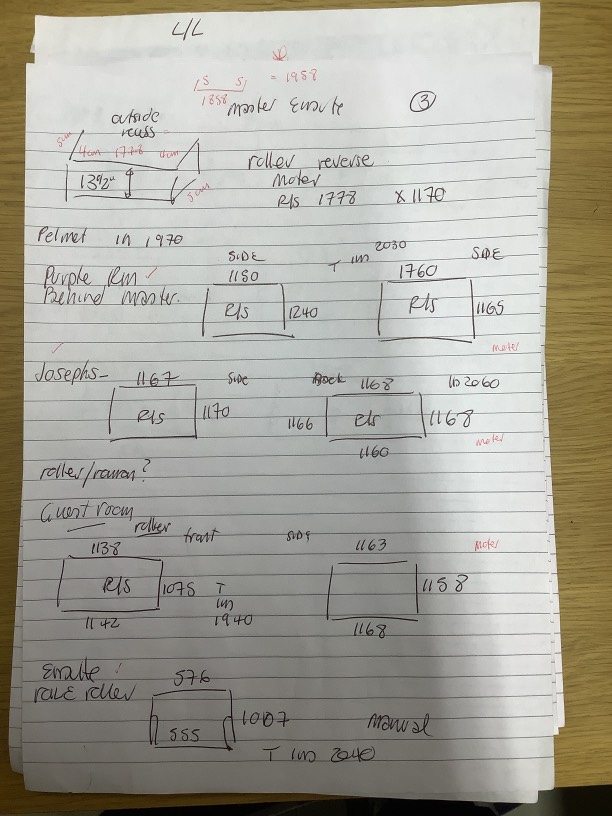 L/L
5 5 = 1958
1858
master Ensuite ③
outside
recess
5cm 4cm 1778 4cm
1392" 5cm
roller reverse
moter
R/s 1778 x 1170
Pelmet in 1970
Purple Rm ✓
Behind master.
SIDE
1180
R/s 1240
T in 2030
SIDE
1760
R/s 1165
moter
Josephs-
1167 SIDE
R/s 1170
1168 in 2060
1166 R/s 1168
1160
moter
roller/roman?
Guest room
roller front
1138
R/s 1075
1142
T
in
1940
SIDE
1163
1158
1168
moter
Ensuite
roller
576
1007
555
manual
T in 2040